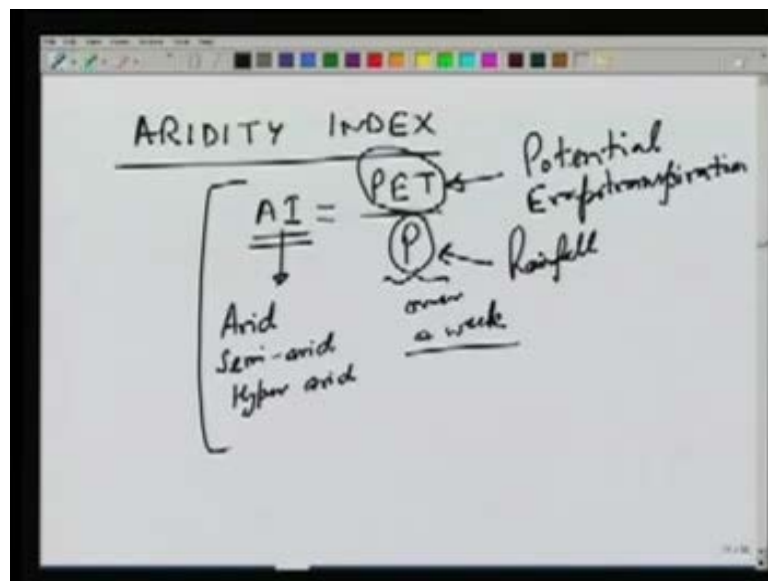 ARIDITY INDEX
AI = PET
P
Potential
Evapotranspiration
Rainfall
over
a week
Arid
Semi-arid
Hyper arid